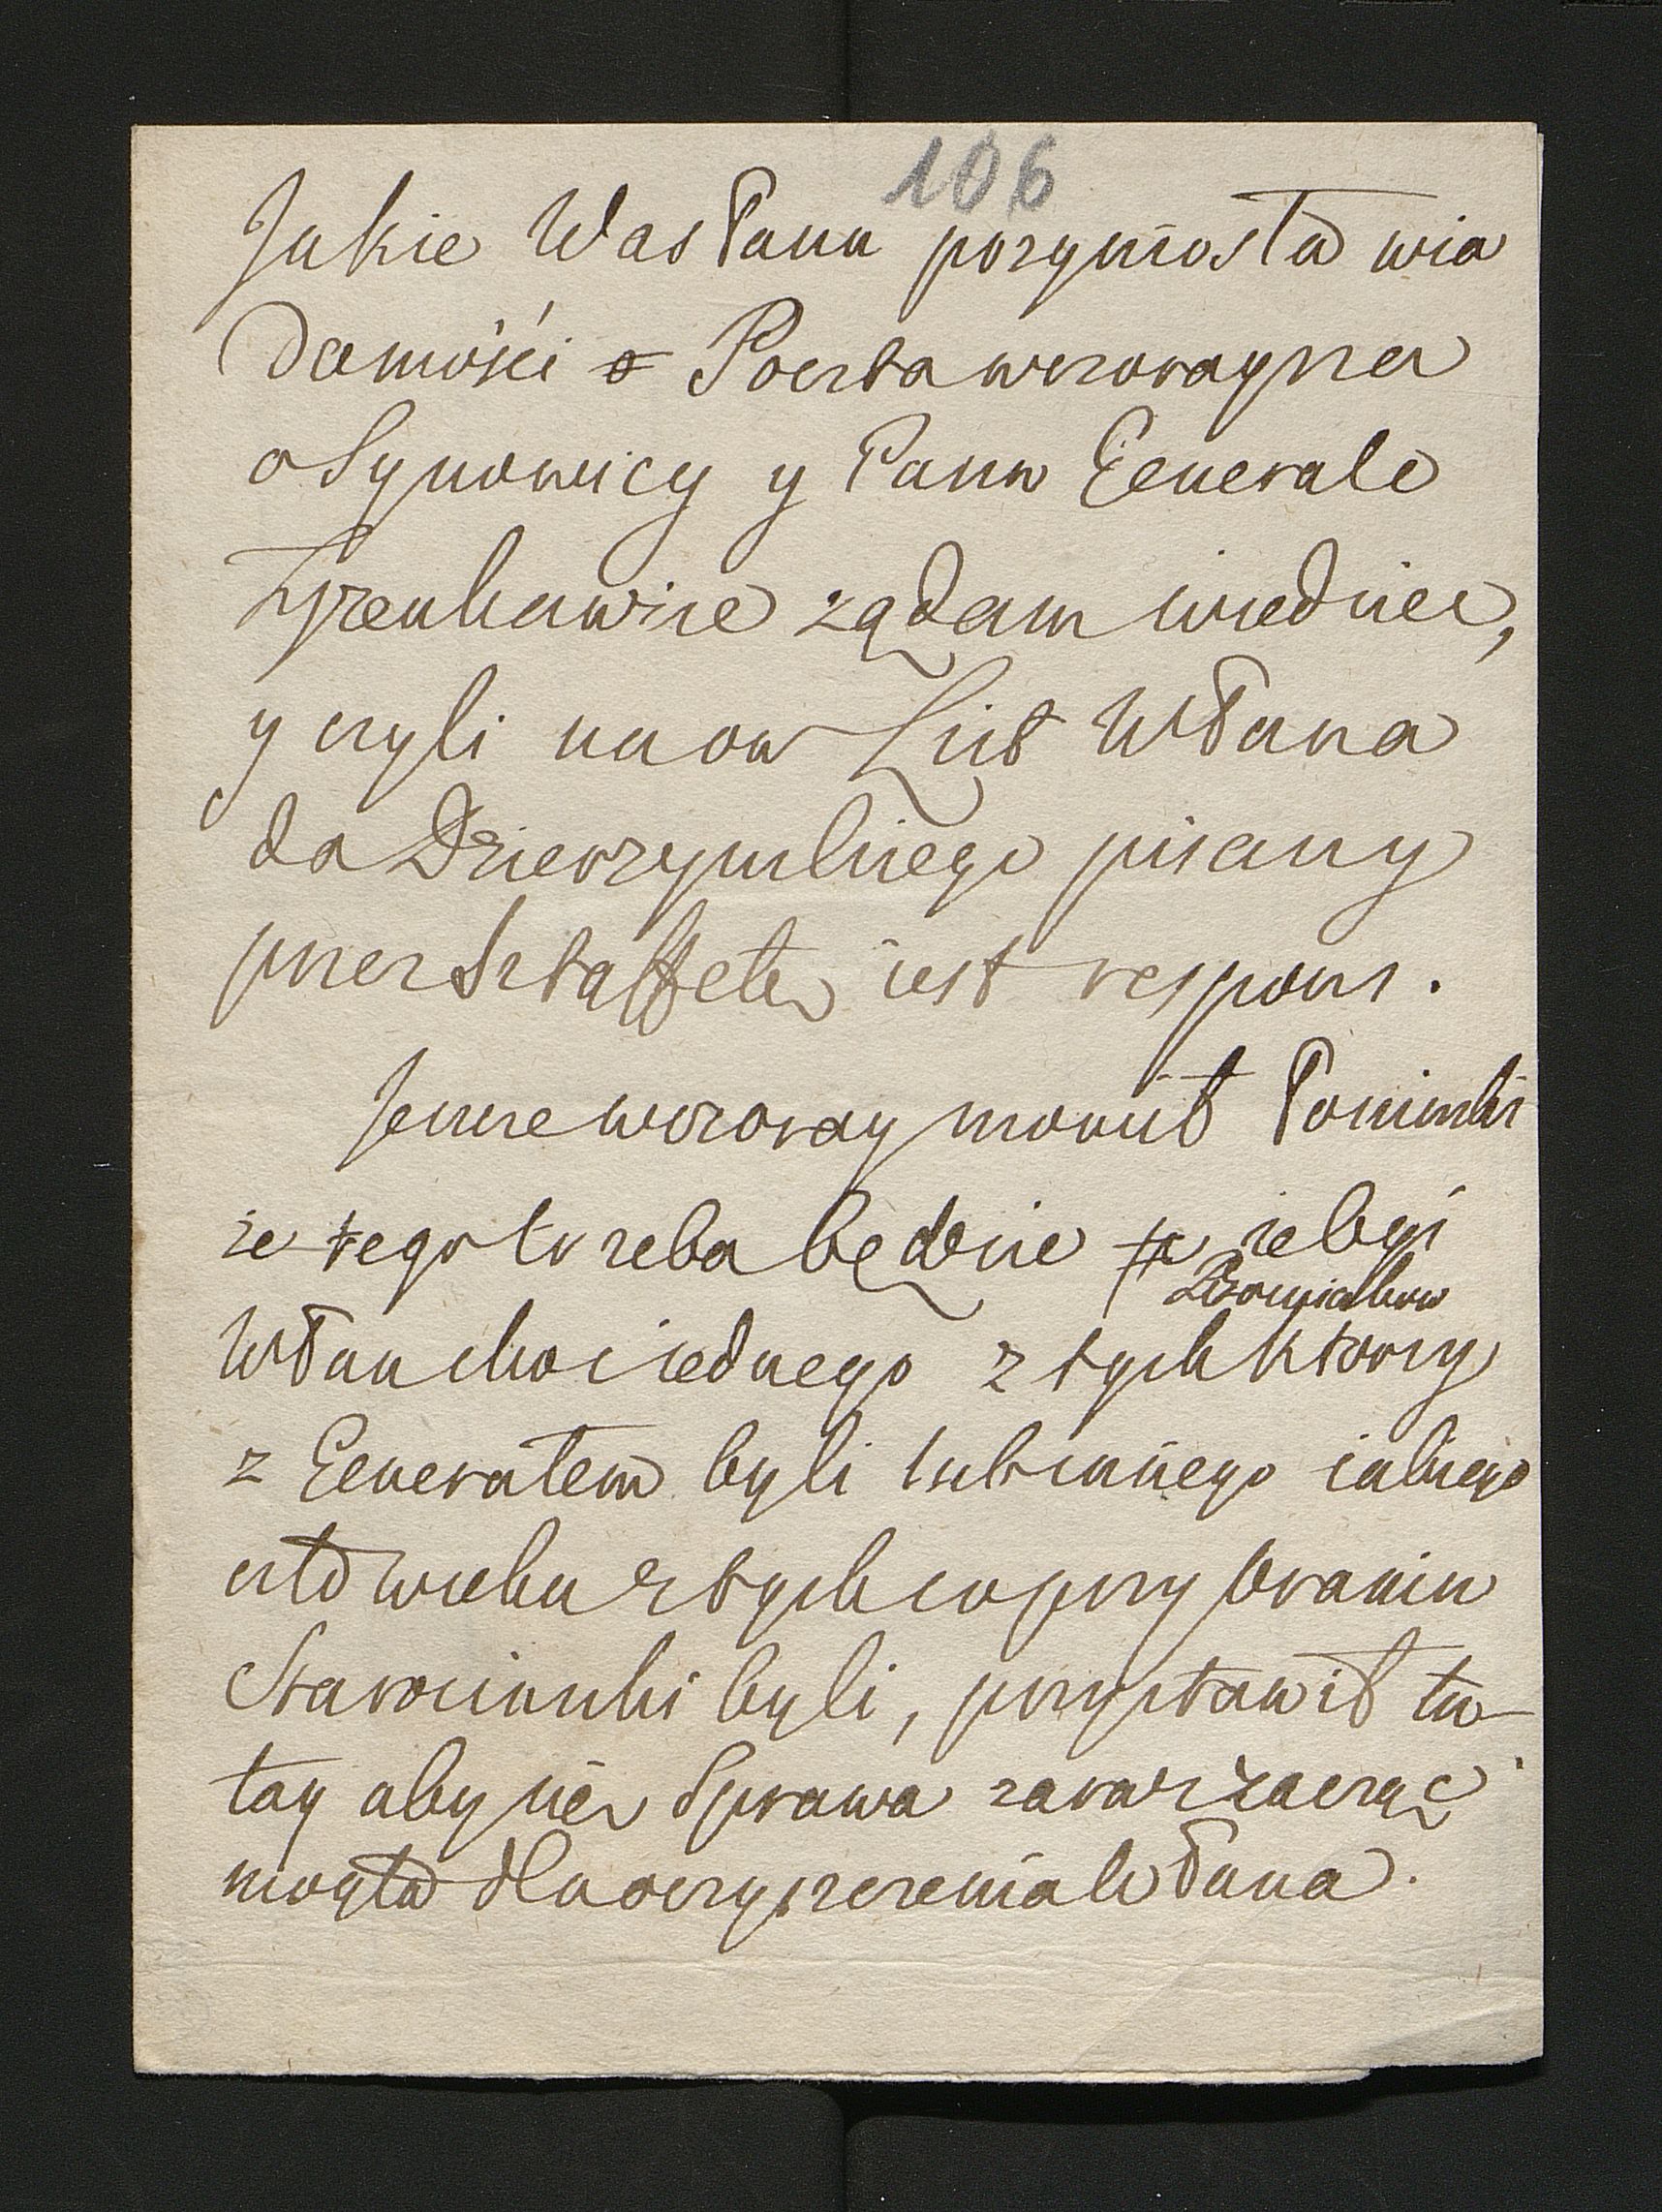 106
Jakie WasPanu przyniosła wia
domości Poczta wczoraysza
o Synowicy y Panu Generale
żądam wiedzieć,
y czyli na ow List WPana
do Dzierzynskiego pisany
przez Sztaffetę iest respons.
Jeszcze wczoray mowił Poninski
że tego trzeba będzie żebyś
WPan choc iednego z tych ktorzy
z Generałem byli takiego
człowieka z tych co przy braniu
Starościanki byli, przystawił tu
tay aby się Sprawa zaraz zacząć
mogła dla oczyszczenia WPana.